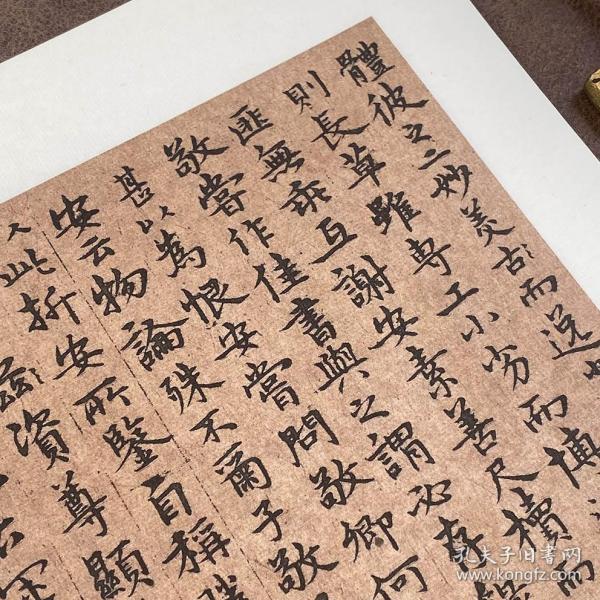 體彼之二妙美古而逸
則長草雖專工小劣而博
匪無乖互謝安素善尺牘而
敬嘗作佳書與之謂必存
甚以為恨安嘗問敬卿何
安云物論殊不爾子敬
此折安所鑒自稱勝
茲資尊顯
孔夫子旧书网
www.kongfz.com